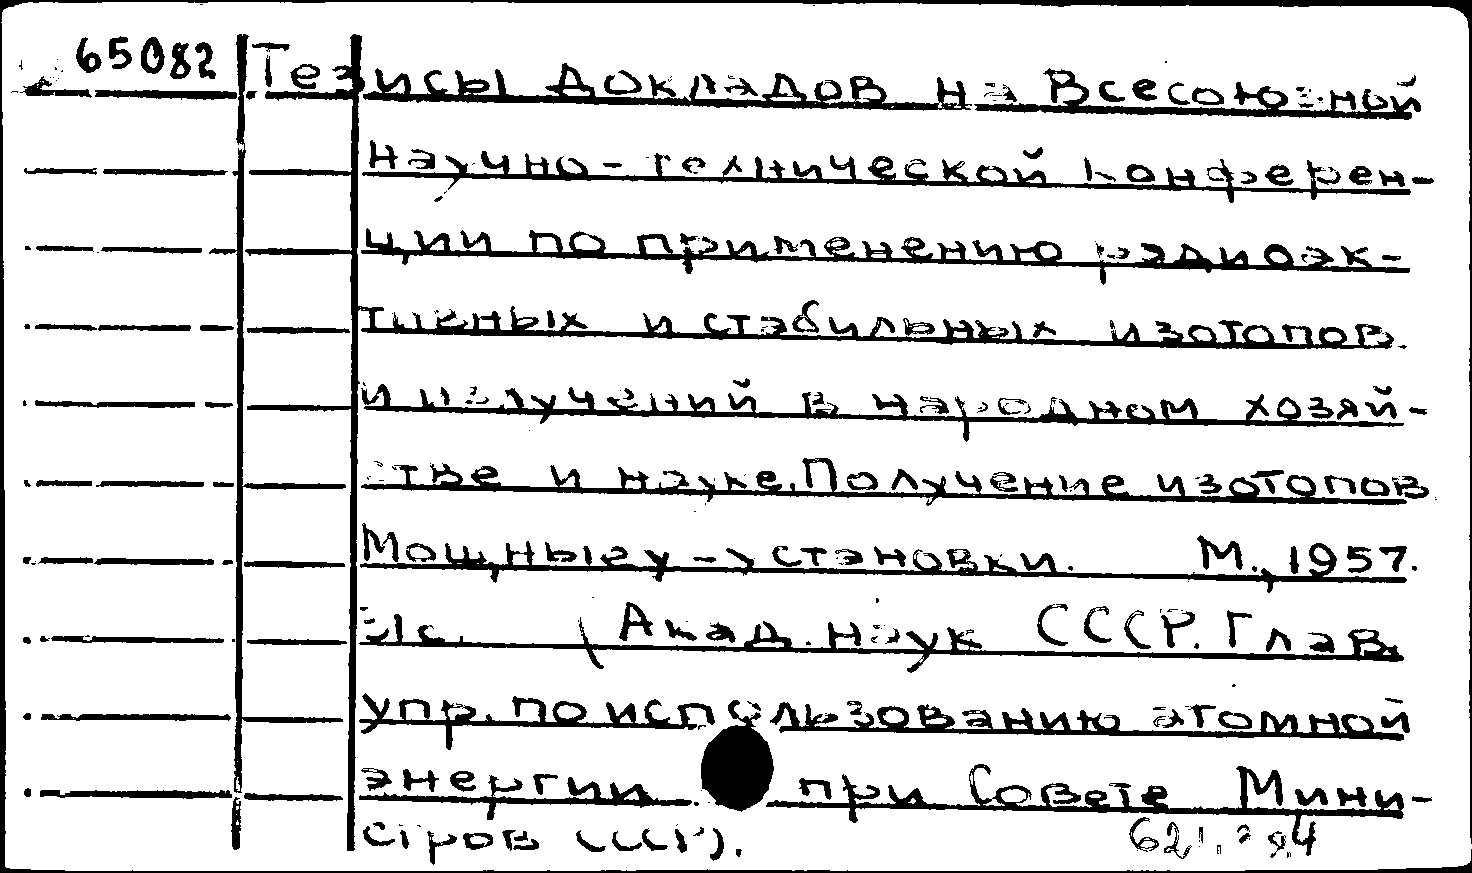 65082 Тезисы докладов на Всесоюзной
научно-технической конферен-
ции по применению радиоак-
тивных и стабильных изотопов
и излучений в народном хозяй-
стве и науке. Получение изотопов
Мощные γ-установки. М., 1957.
(Акад. наук СССР. Глав.
упр. по использованию атомной
энергии при Совете Мини-
стров СССР).